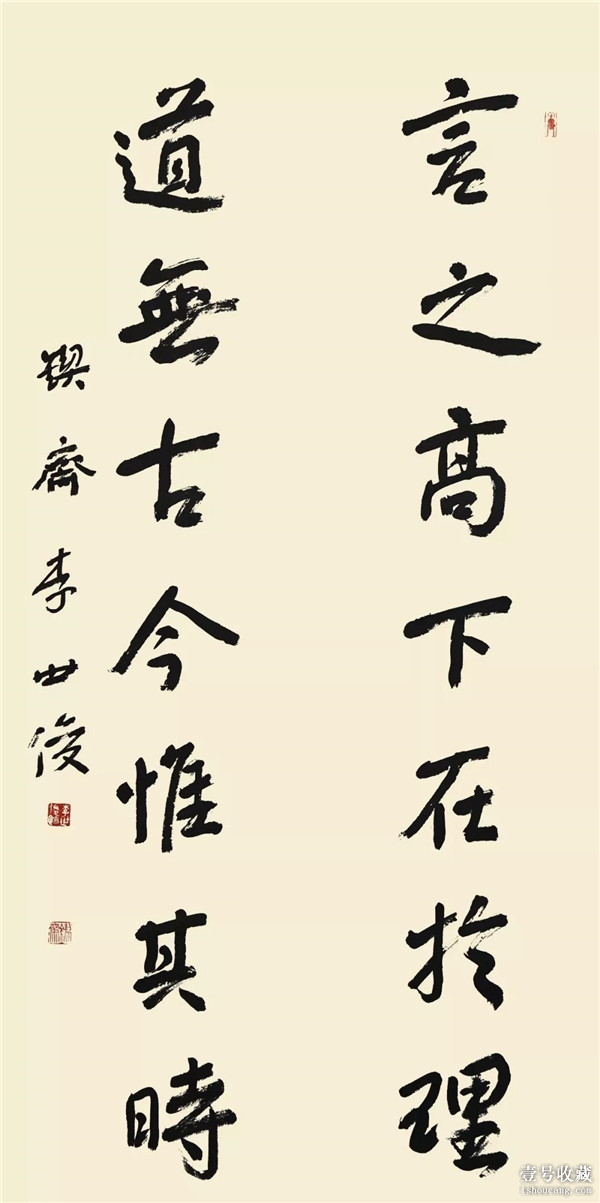 言之高下在於理
道無古今惟其時
鍥齋李世俊
壹号收藏
1shoucang.com